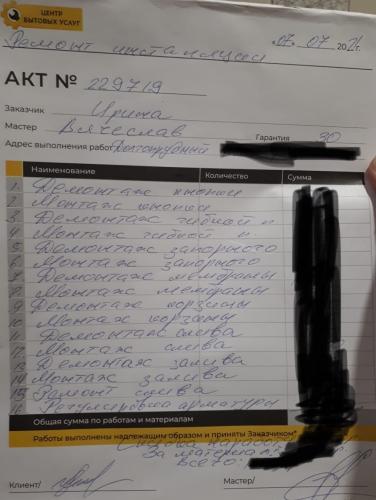 ЦЕНТР
БЫТОВЫХ УСЛУГ
Ремонт инсталляции 07.07 2021г.
АКТ № 229719
Заказчик Ирина
Мастер Вячеслав
Гарантия 30
Адрес выполнения работ Долгопрудный
Наименование Количество Сумма
1. Демонтаж кнопки
2 Монтаж кнопки
3 Демонтаж гибкой п.
4 Монтаж гибкой п.
5 Демонтаж запорного
6 Монтаж запорного
7 Демонтаж мембраны
8 Монтаж мембраны
9 Демонтаж корзины
10 Монтаж корзины
11 Демонтаж слива
12 Монтаж слива
13 Демонтаж залива
14 Монтаж залива
15 Ремонт слива
16 Регулировка арматуры
Общая сумма по работам и материалам
Работы выполнены надлежащим образом и приняты Заказчиком*
За материал
Всего:
Клиент/ Мастер/